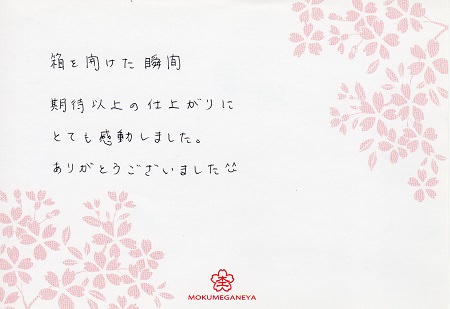 箱を開けた瞬間
期待以上の仕上がりに
とても感動しました。
ありがとうございました^^
MOKUMEGANEYA